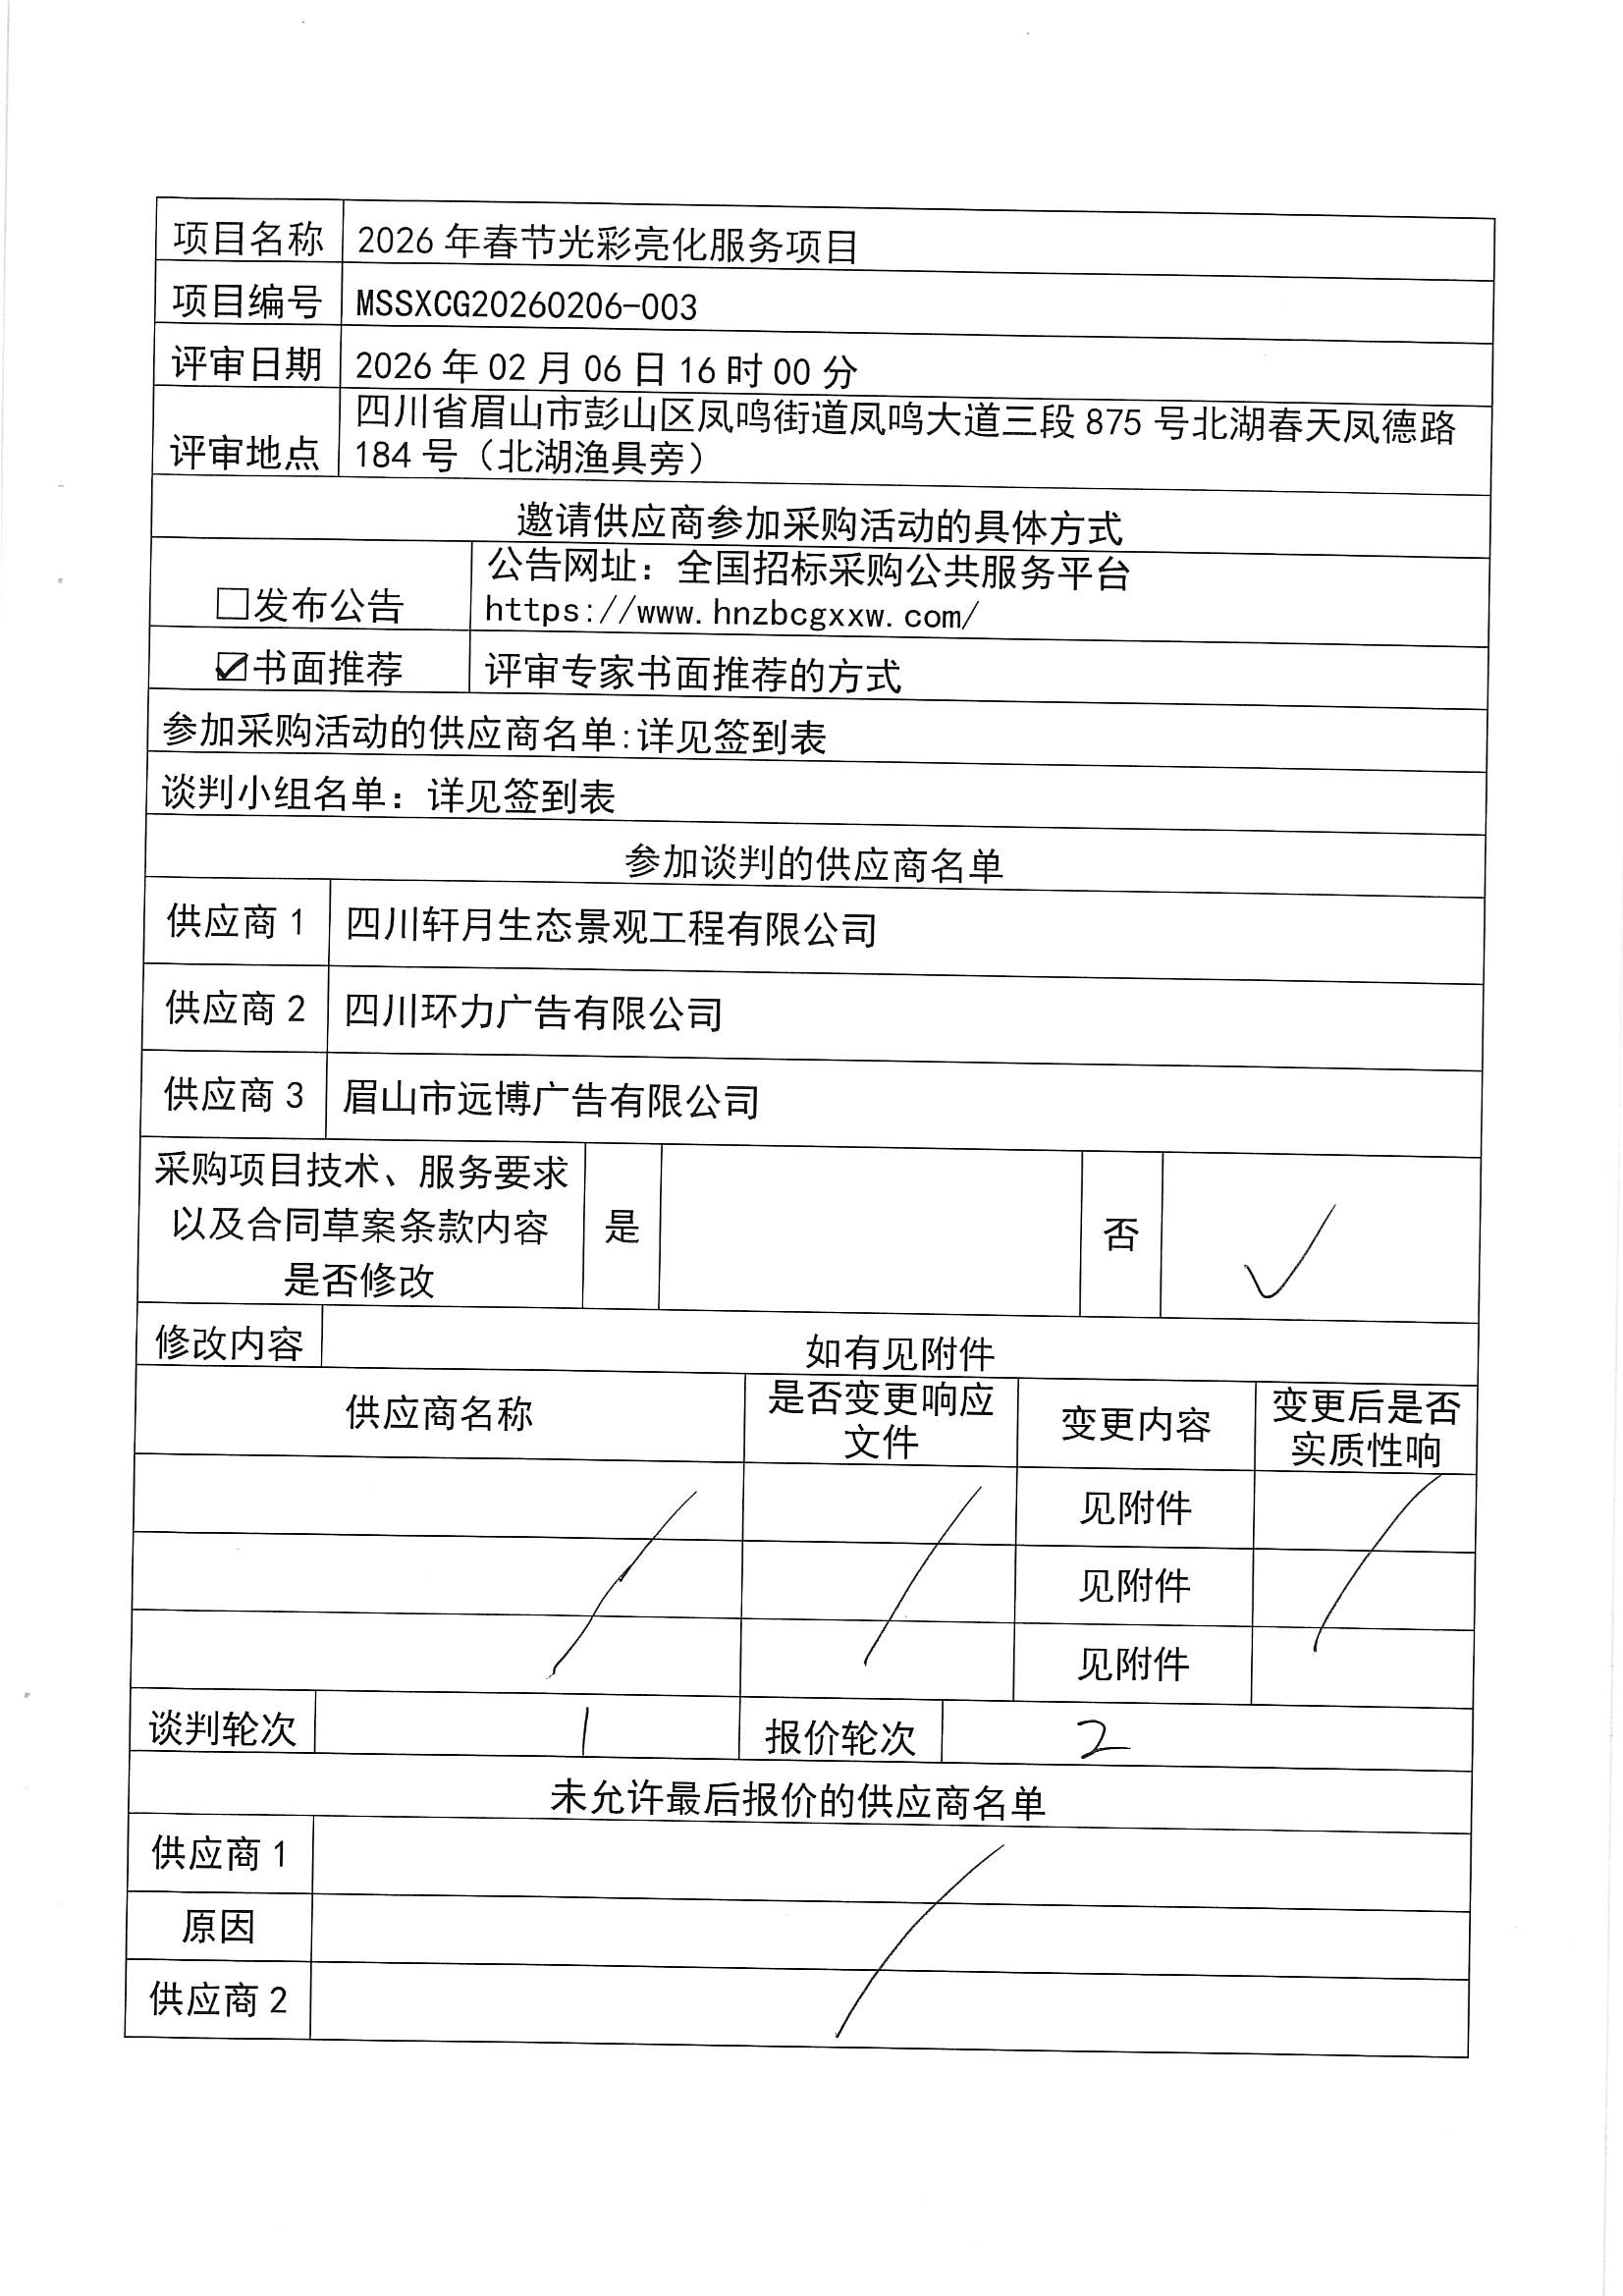 项目名称 2026 年春节光彩亮化服务项目
项目编号 MSSXCG20260206-003
评审日期 2026 年 02 月 06 日 16 时 00 分
评审地点 四川省眉山市彭山区凤鸣街道凤鸣大道三段 875 号北湖春天凤德路
184 号（北湖渔具旁）
邀请供应商参加采购活动的具体方式
□发布公告 公告网址：全国招标采购公共服务平台
https://www.hnzbcgxxw.com/
☑书面推荐 评审专家书面推荐的方式
参加采购活动的供应商名单:详见签到表
谈判小组名单：详见签到表
参加谈判的供应商名单
供应商 1 四川轩月生态景观工程有限公司
供应商 2 四川环力广告有限公司
供应商 3 眉山市远博广告有限公司
采购项目技术、服务要求
以及合同草案条款内容
是否修改
是 否 ✓
修改内容 如有见附件
供应商名称 是否变更响应
文件
变更内容 变更后是否
实质性响
见附件
见附件
见附件
谈判轮次 1 报价轮次 2
未允许最后报价的供应商名单
供应商 1
原因
供应商 2